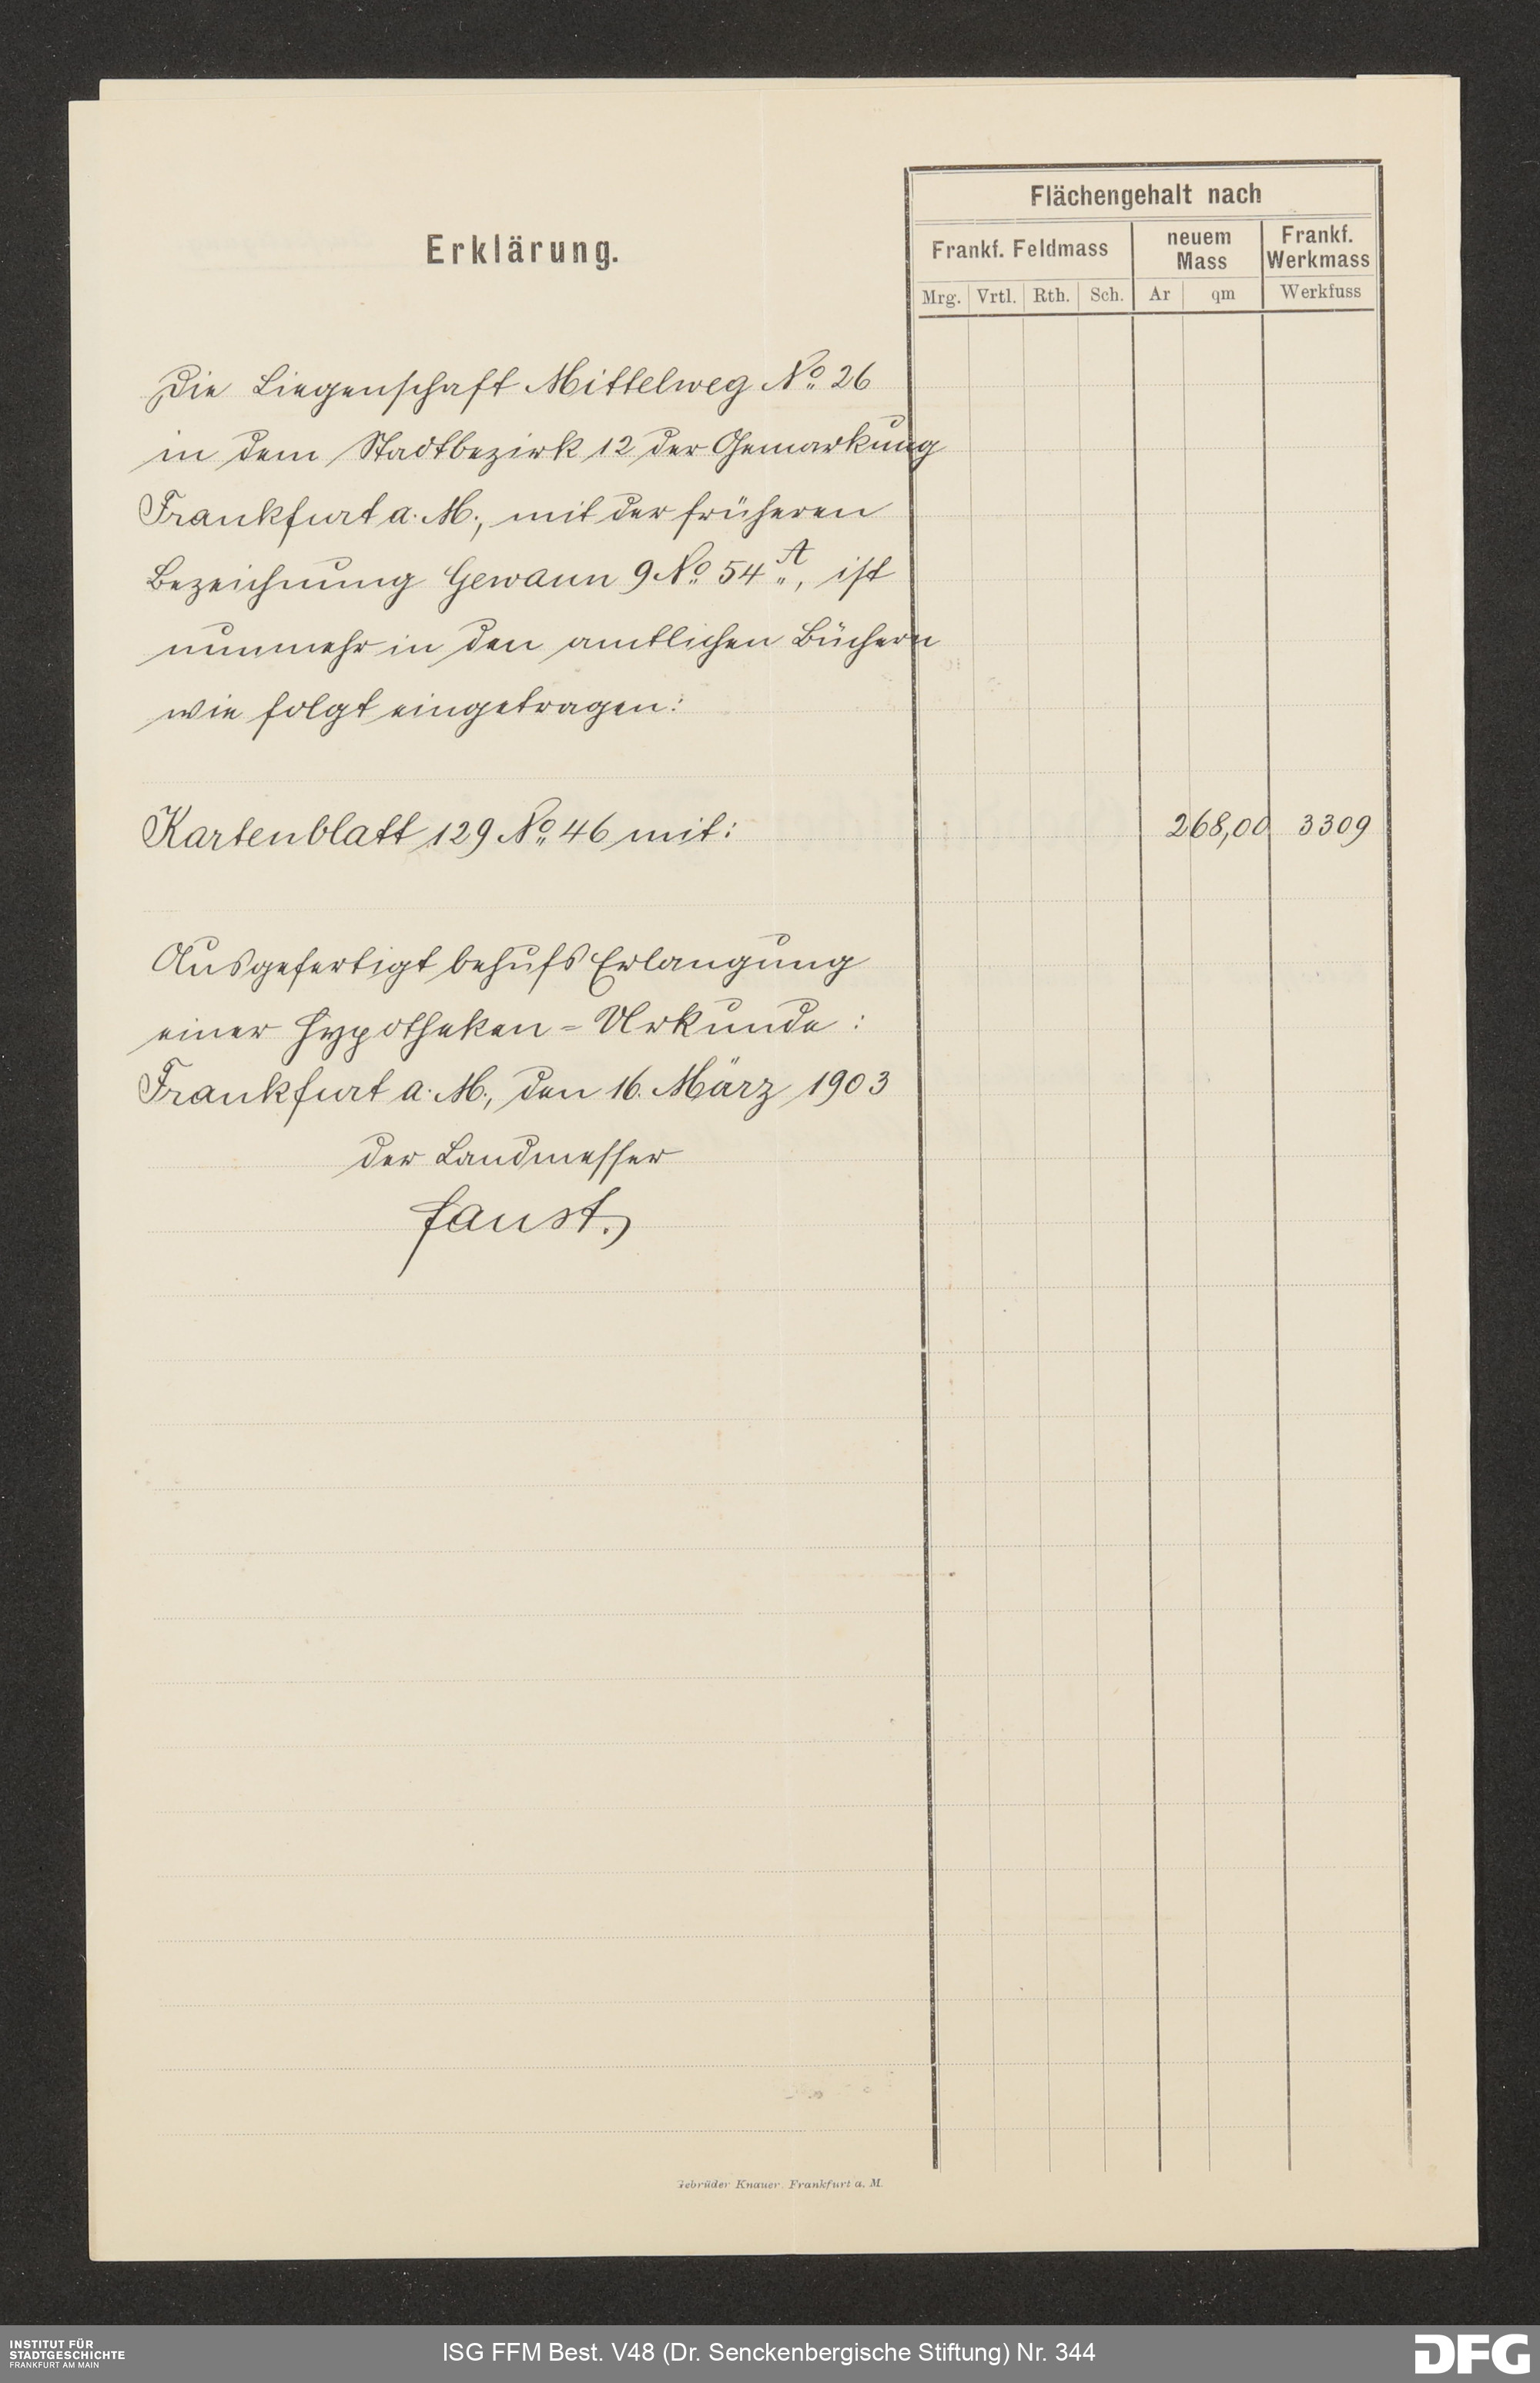 Erklärung.
Flächengehalt nach
Frankf. Feldmass
neuem Mass
Frankf. Werkmass
Mrg. Vrtl. Rth. Sch. Ar qm Werkfuss
Die Liegenschaft Mittelweg No. 26
in dem Stadtbezirk 12 der Gemarkung
Frankfurt a. M., mit der früheren
Bezeichnung Gewann 9 No. 54 A, ist
nunmehr in den amtlichen Büchern
wie folgt eingetragen:
Kartenblatt 129 No. 46 mit: 268,00 3309
Ausgefertigt behufs Erlangung
einer Hypotheken-Urkunde:
Frankfurt a. M., den 16. März 1903
der Landmesser
Faust.
Gebrüder Knauer. Frankfurt a. M.
INSTITUT FÜR
STADTGESCHICHTE
FRANKFURT AM MAIN
ISG FFM Best. V48 (Dr. Senckenbergische Stiftung) Nr. 344
DFG